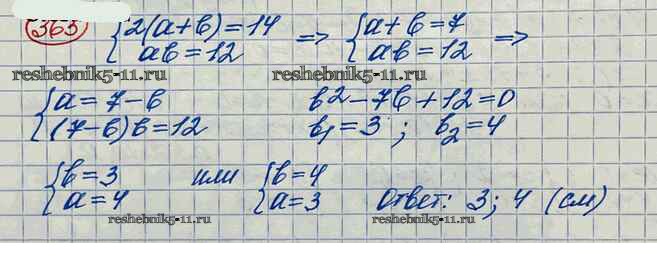 363 { 2(a+b)=14 ab=12 => { a+b=7 ab=12 =>
reshebnik5-11.ru reshebnik5-11.ru
{ a=7-b (7-b)b=12 b²-7b+12=0 b₁=3; b₂=4
{ b=3 a=4 или { b=4 a=3 Ответ: 3; 4 (см)
reshebnik5-11.ru reshebnik5-11.ru